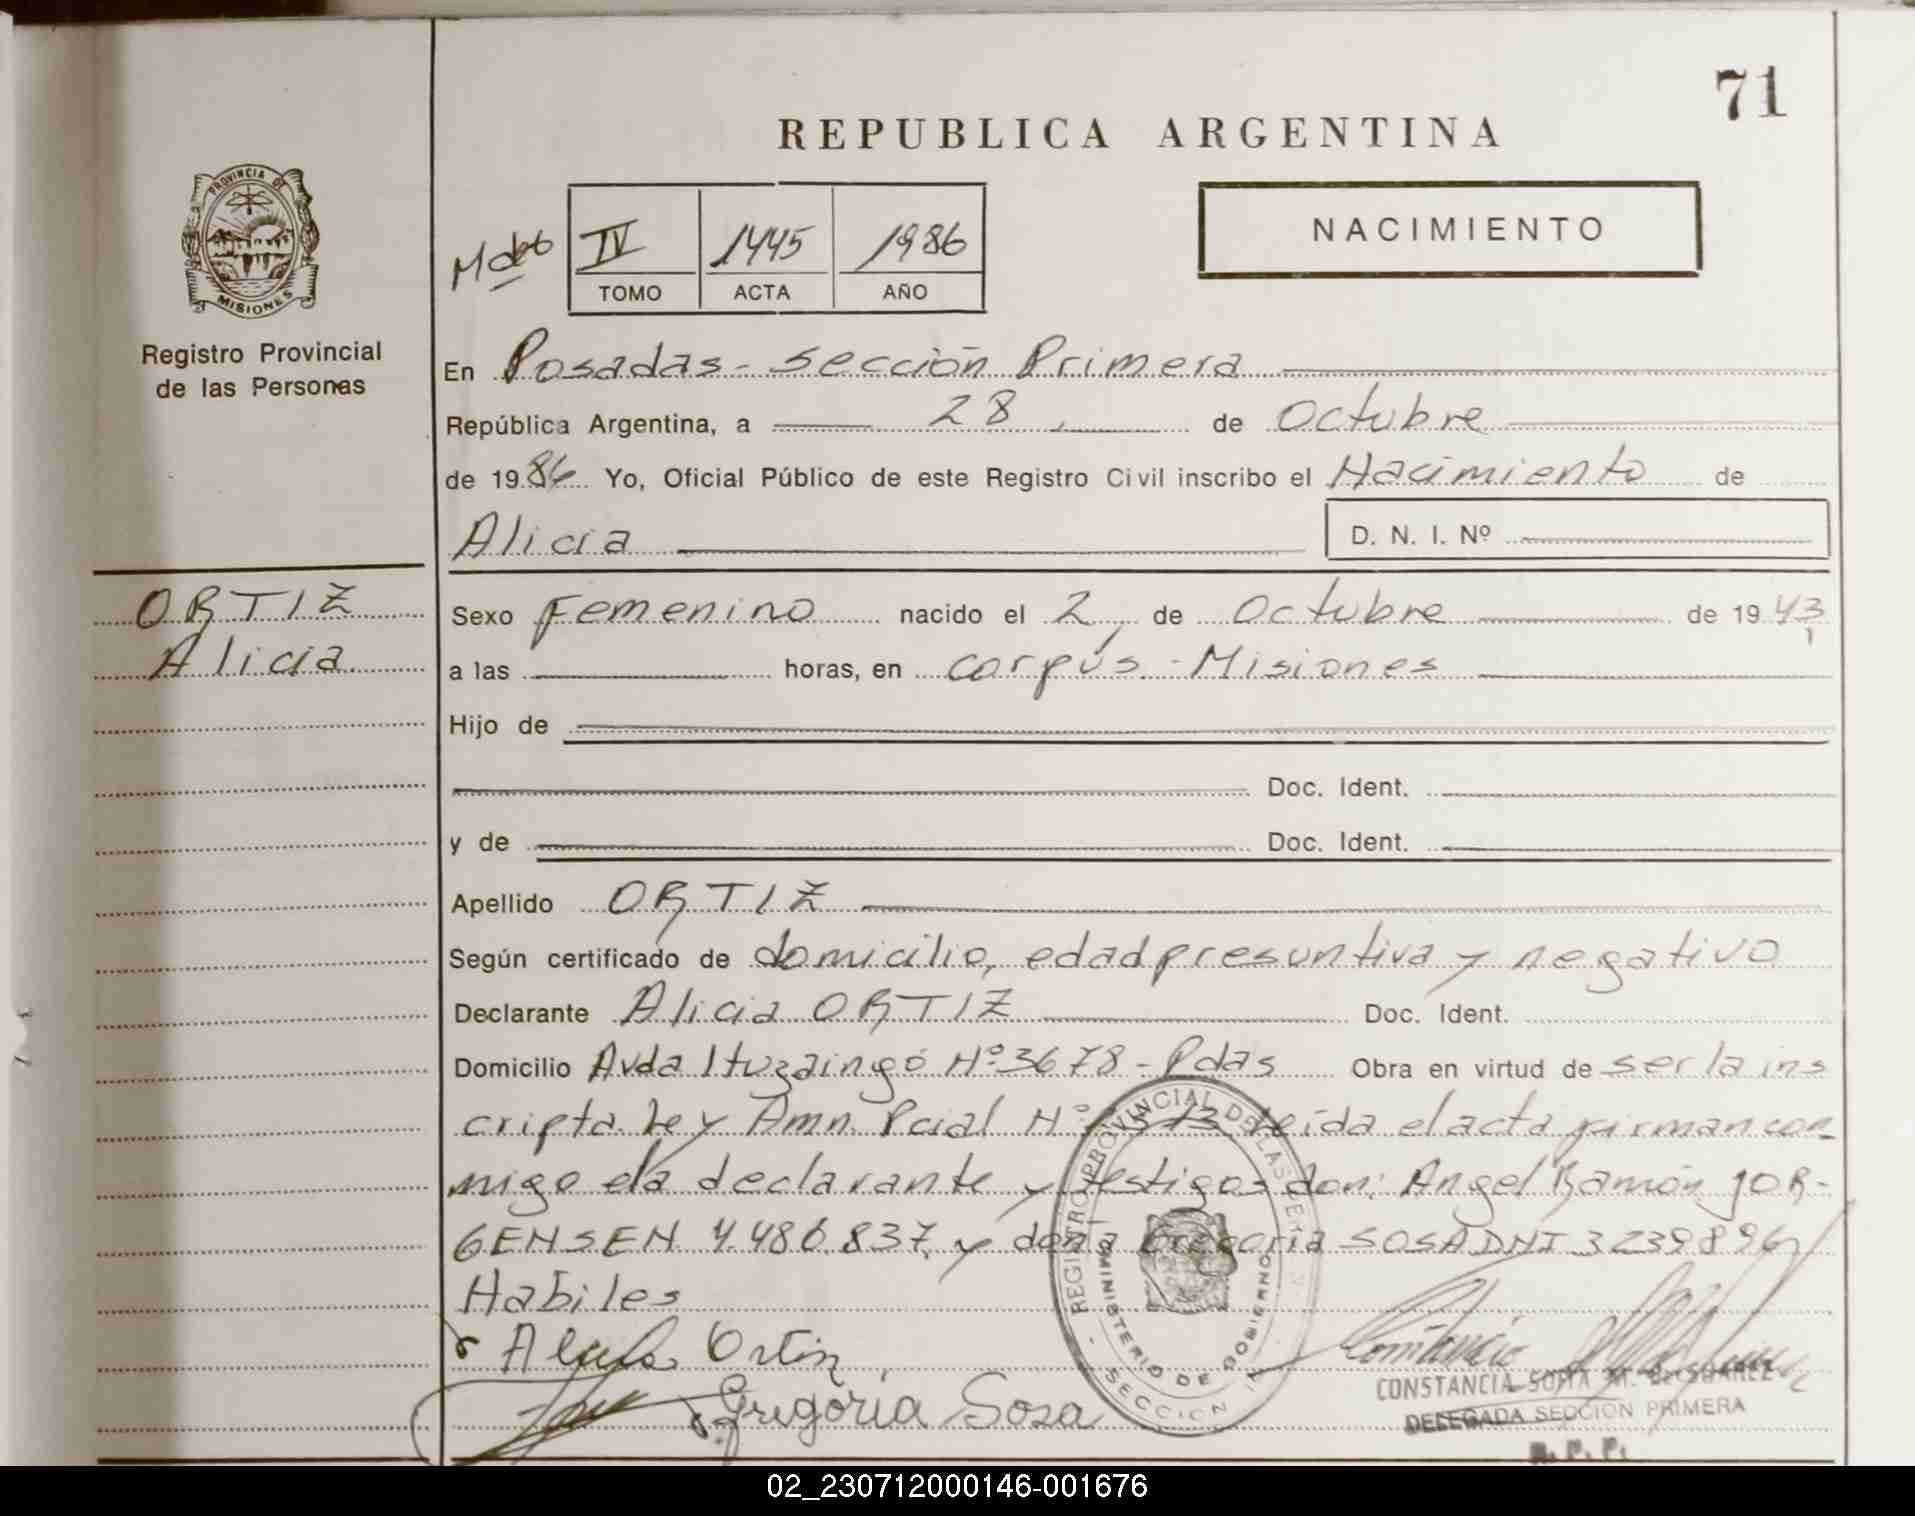 71
REPUBLICA ARGENTINA
PROVINCIA DE
MISIONES
Registro Provincial
de las Personas
IV 1445 1986
TOMO ACTA AÑO
NACIMIENTO
En Posadas - Sección Primera
República Argentina, a 28 de Octubre
de 1986 Yo, Oficial Público de este Registro Civil inscribo el Nacimiento de
Alicia D. N. I. Nº
ORTIZ
Alicia
Sexo Femenino nacido el 2 de Octubre de 1943
a las horas, en Corpus - Misiones
Hijo de
Doc. Ident.
y de Doc. Ident.
Apellido ORTIZ
Según certificado de domicilio, edad presuntiva y negativo
Declarante Alicia ORTIZ Doc. Ident.
Domicilio Avda Ituzaingó Nº 3678 - Pdas Obra en virtud de ser la ins
cripta. Ley Amn. Pcial Nº Leída el acta firman con-
migo la declarante y testigos don: Angel Ramón JOR-
GENSEN 7.486.837 y doña Gregoria SOSA DNI 3239896
Habiles
Ortiz
Gregoria Sosa
REGISTRO PROVINCIAL DE LAS PERSONAS
MINISTERIO DE GOBIERNO
SECCION
CONSTANCIA SOFIA M. DE SUAREZ
DELEGADA SECCION PRIMERA
R. P. P.
02_230712000146-001676